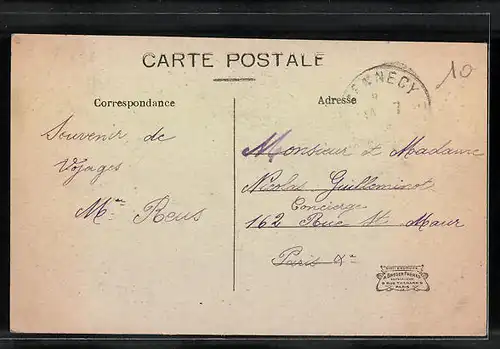 CARTE POSTALE
10
MENNECY
7
Correspondance
Adresse
Souvenir de
Voyages
Mme Reus
Monsieur et Madame
Nicolas Guilleminot
Concierge
162 Rue St Maur
Paris Xe
PARIS